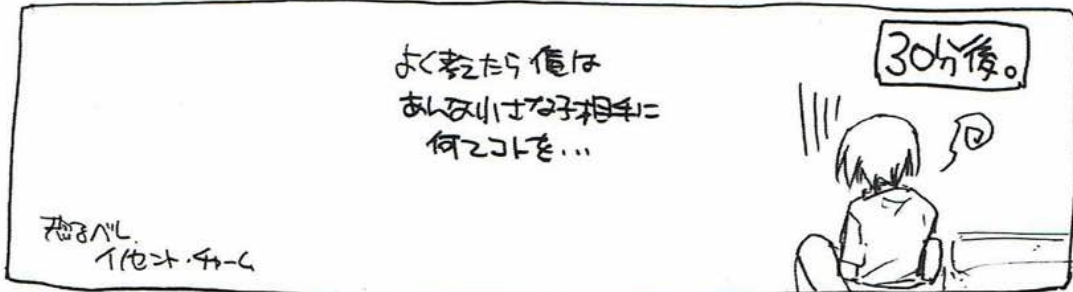 30分後。
よく考えたら俺は
あんな小さな子相手に
何てコトを…
恐るべし
イノセント・チャーム